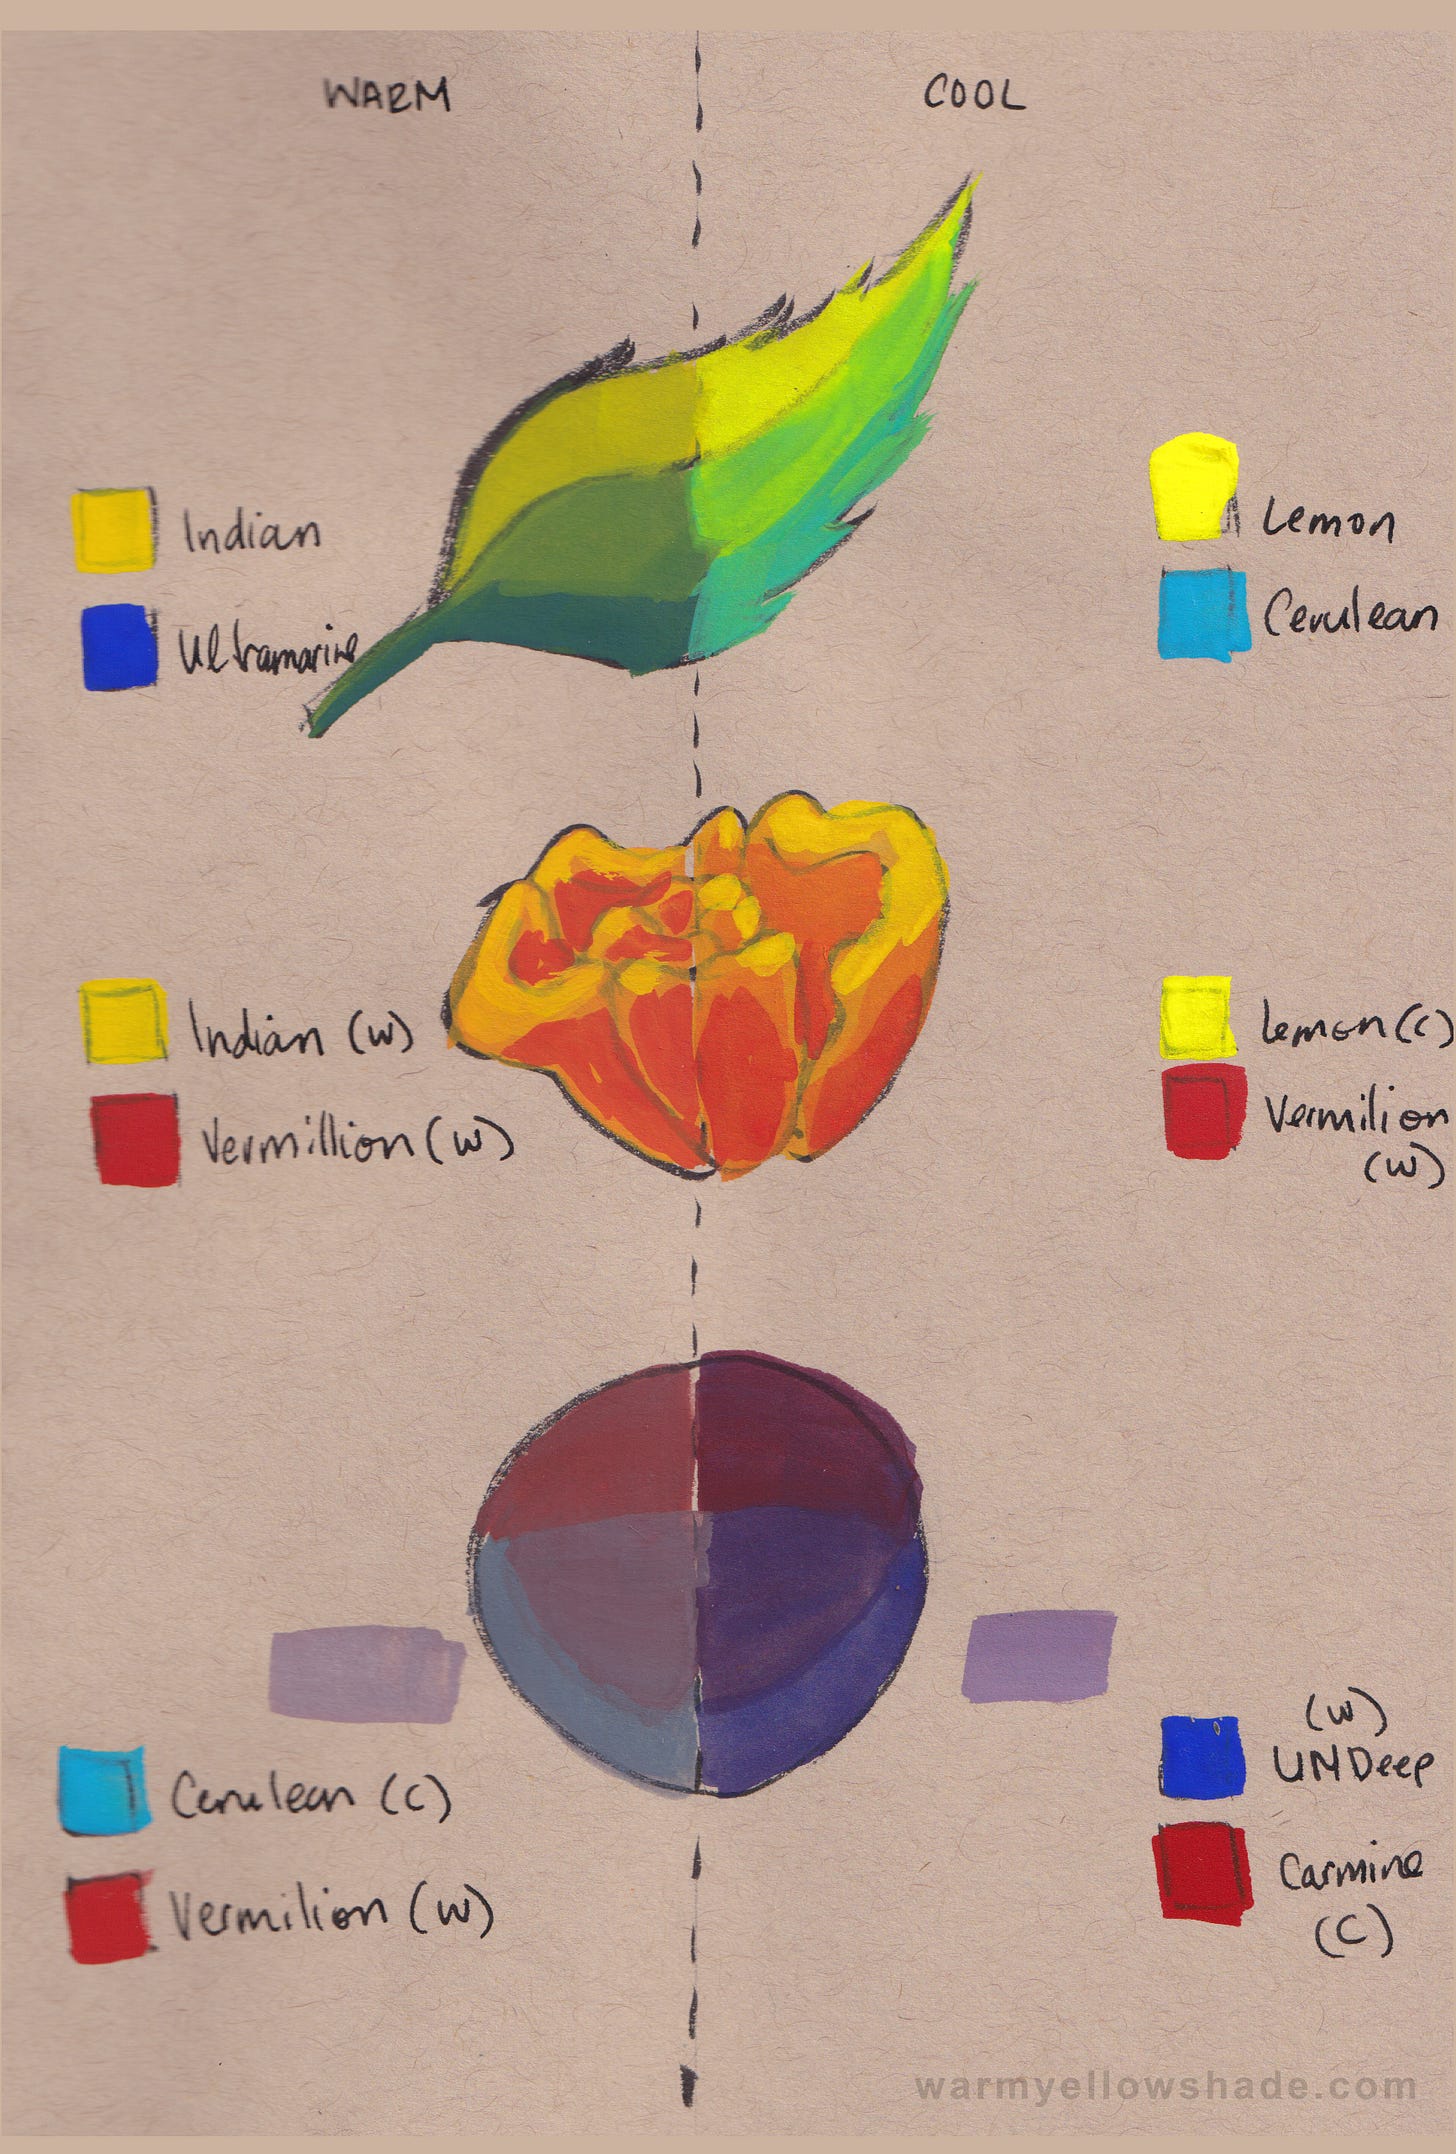 WARM
COOL
Indian
Ultramarine
Lemon
Cerulean
Indian (W)
Vermillion (W)
Lemon (C)
Vermilion
(W)
Cerulean (C)
Vermilion (W)
(W)
UMDeep
Carmine
(C)
warmyellowshade.com